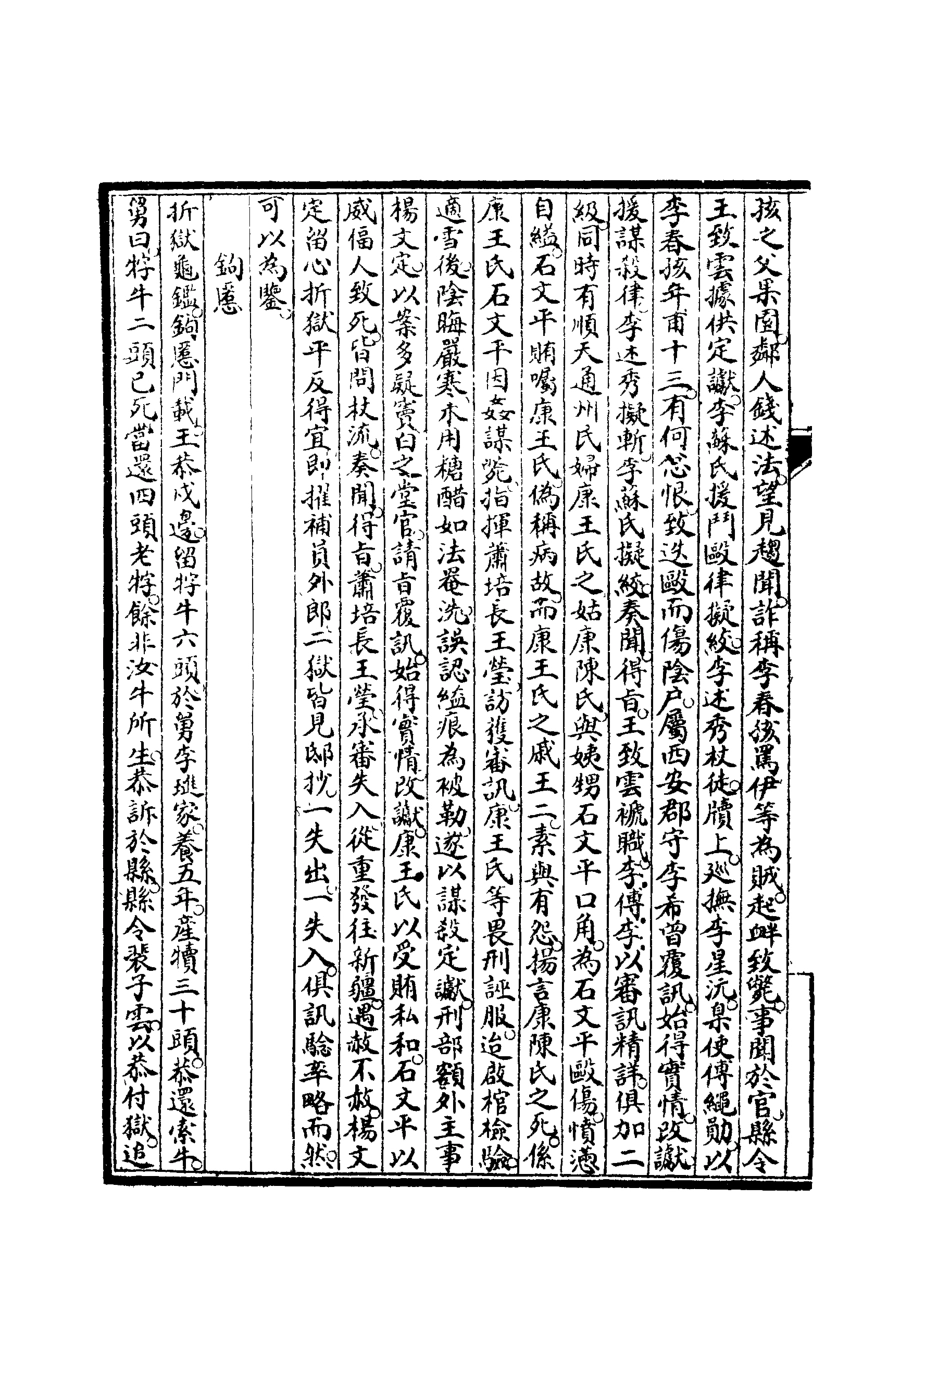 孩之父果園鄰人錢述法望見趨聞詐稱李春孩罵伊等為賊起衅致斃事聞於官縣令
王致雲據供定讞李蘇氏援鬥毆律擬絞李述秀杖徒牘上巡撫李星沅臬使傅繩勛以
李春孩年甫十三有何忿恨致迭毆而傷陰户屬西安郡守李希曾覆訊始得實情改讞
援謀殺律李述秀擬斬李蘇氏擬絞奏聞得旨王致雲褫職李傅李以審訊精詳俱加二
級同時有順天通州民婦康王氏之姑康陳氏與姨甥石文平口角為石文平毆傷憤懣
自縊石文平賄囑康王氏偽稱病故而康王氏之戚王二素與有怨揚言康陳氏之死係
康王氏石文平因姦謀斃指揮蕭培長王瑩訪獲審訊康王氏等畏刑誣服迨啟棺檢驗
適雪後陰晦嚴寒未用糟醋如法罨洗誤認縊痕為被勒遂以謀殺定讞刑部額外主事
楊文定以案多疑竇白之堂官請旨覆訊始得實情改讞康王氏以受賄私和石文平以
威偪人致死皆問杖流奏聞得旨蕭培長王瑩承審失入從重發往新疆遇赦不赦楊文
定留心折獄平反得宜即摧補員外郎二獄皆見邸抄一失出一失入俱訊驗率略而然
可以為鑒
鉤慝
折獄龜鑑鉤慝門載王恭戍邊留牸牛六頭於舅李璡家養五年產犢三十頭恭還索牛
舅曰牸牛二頭已死當還四頭老牸餘非汝牛所生恭訴於縣縣令裴子雲以恭付獄追